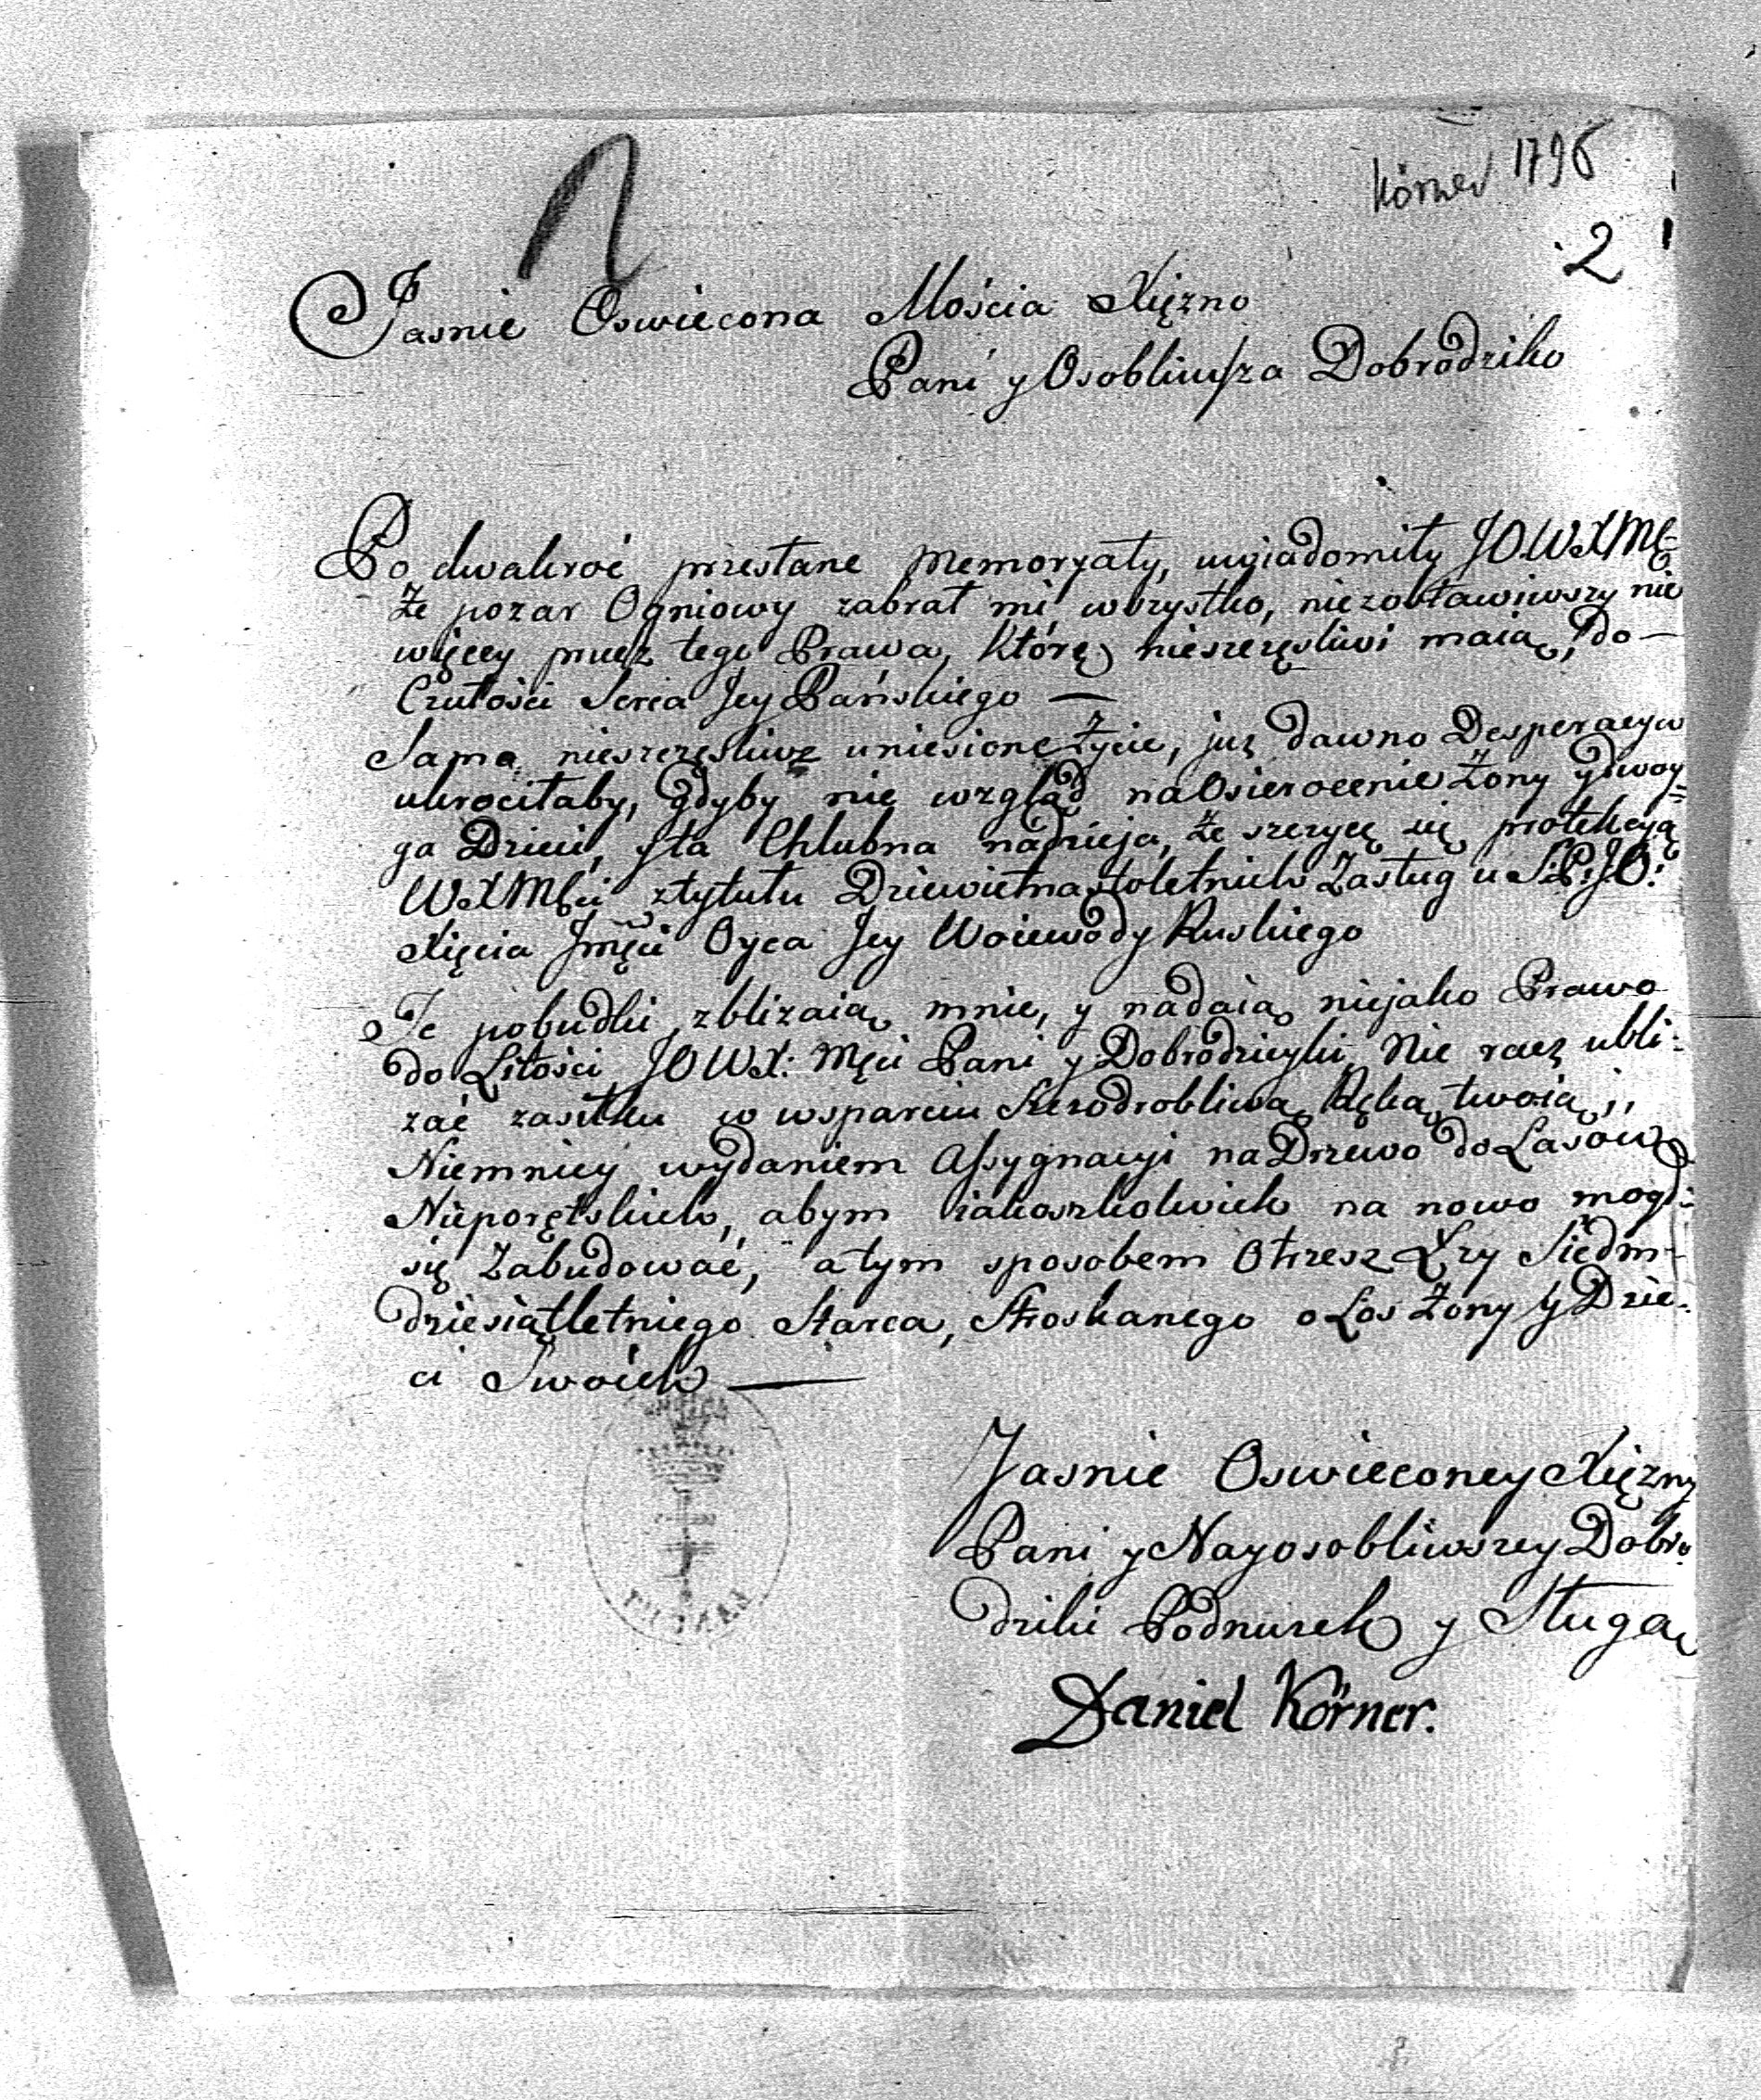 Körner 1796
2
Jasnie Oswiecona Mościa Xiężno
Pani y Osobliwsza Dobrodziko
Po dwakroć przesłane Memoryały, uwiadomiły JOWXMĘ
Że pozar Ogniowy zabrał mi wszystko, niezostawiwszy nic
więcey prucz tego Prawa, Które nieszczęsliwi maią, do —
Czułości Serca Jey Pańskiego —
Sama nieszczęsliwe uniesione Życie, już dawno Desperacya
ukrociłaby, gdyby nie wzgląd na Osierocenie Żony y dwoy=
ga Dzieci, y ta Chlubna nadzieja, że szczycę się protekcyą
WXMści ztytułu Dziewiętnastoletnich Zasług u S:P:JO:
Xięcia Jmści Oyca Jey Woiewody Ruskiego
Te pobudki zblizaią mnie, y nadaią niejako Prawo
do Litości JOWX: Mści Pani y Dobrodzieyki, Nie racz ubli:
zać zasiłku w wsparciu Szczodrobliwą Ręką twoią,
Niemniey wydaniem Assygnacyi na Drzewo do Lasow
Nieporętskich, abym iakoszkolwiek na nowo mogł
się Zabudować, a tym sposobem Otrzesz Łzy Siedm-
dziesiątletniego Starca, Stroskanego o Los Żony y Dzie-
ci Swoich —
Jasnie Oswieconey Xiężny
Pani y Nayosobliwszey Dobro
dziki Podnużek y Sługa
Daniel Körner.